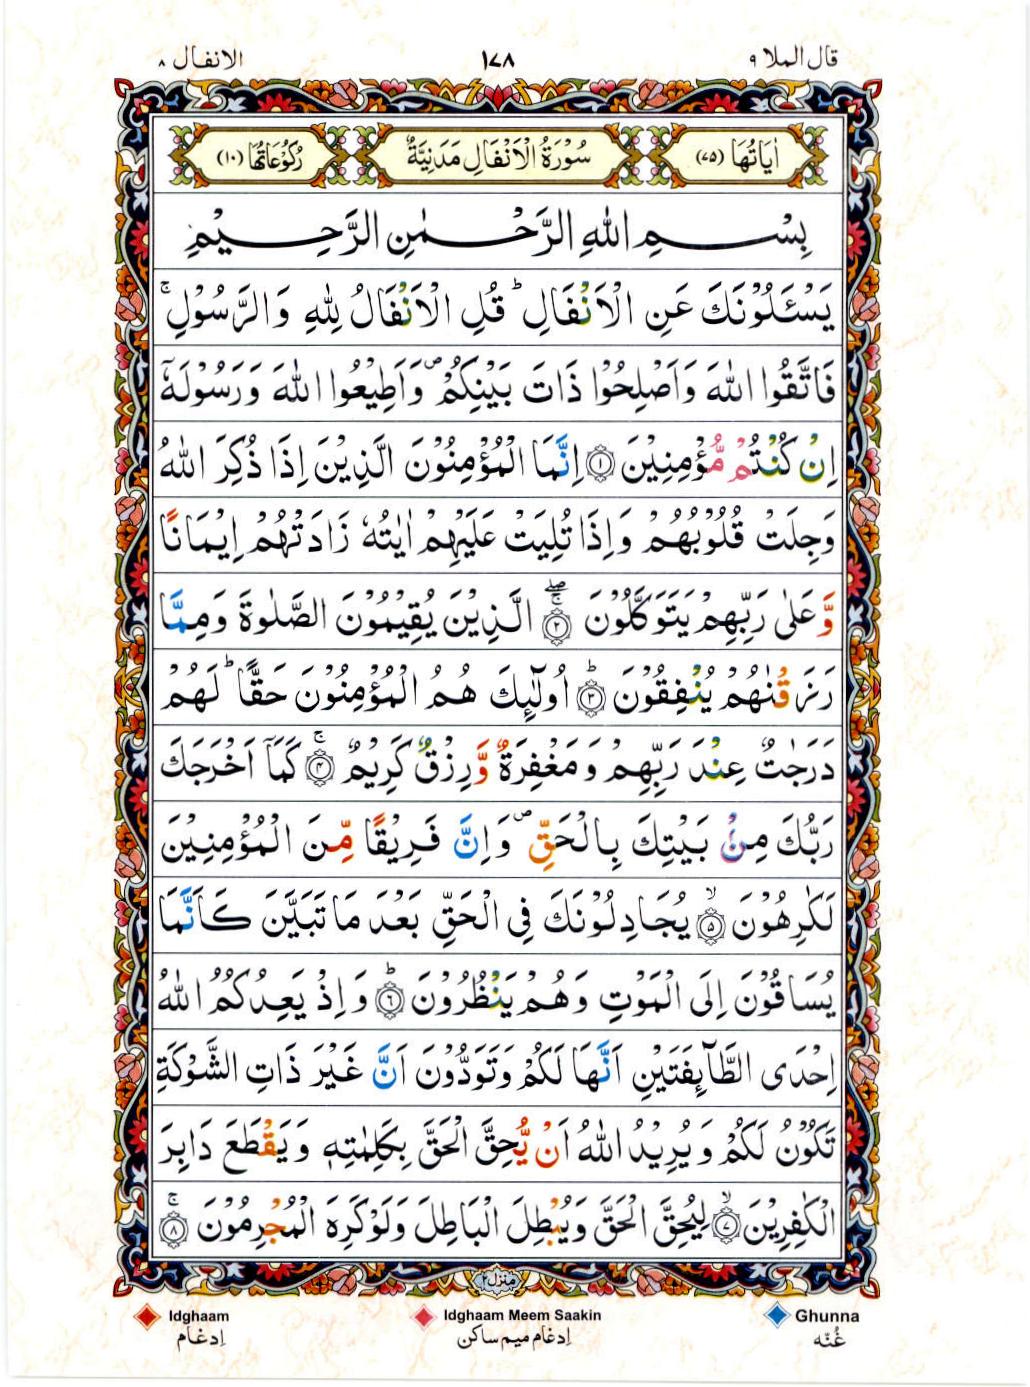 قال الملا ٩
١٧٨
الانفال ٨
اٰيَاتُهَا (٧٥)
سُوْرَةُ الْاَنْفَالِ مَدَنِيَّةٌ
رُكُوْعَاتُهَا (١٠)
بِسْمِ اللّٰهِ الرَّحْمٰنِ الرَّحِيْمِ
يَسْـَٔلُوْنَكَ عَنِ الْاَنْفَالِ ؕ قُلِ الْاَنْفَالُ لِلّٰهِ وَالرَّسُوْلِ ۚ
فَاتَّقُوا اللّٰهَ وَاَصْلِحُوْا ذَاتَ بَيْنِكُمْ ۪ وَاَطِيْعُوا اللّٰهَ وَرَسُوْلَهٗۤ
اِنْ كُنْتُمْ مُّؤْمِنِيْنَ ﴿١﴾ اِنَّمَا الْمُؤْمِنُوْنَ الَّذِيْنَ اِذَا ذُكِرَ اللّٰهُ
وَجِلَتْ قُلُوْبُهُمْ وَاِذَا تُلِيَتْ عَلَيْهِمْ اٰيٰتُهٗ زَادَتْهُمْ اِيْمَانًا
وَّعَلٰى رَبِّهِمْ يَتَوَكَّلُوْنَ ﴿٢﴾ ۚۖ الَّذِيْنَ يُقِيْمُوْنَ الصَّلٰوةَ وَمِمَّا
رَزَقْنٰهُمْ يُنْفِقُوْنَ ﴿٣﴾ ؕ اُولٰٓئِكَ هُمُ الْمُؤْمِنُوْنَ حَقًّا ؕ لَهُمْ
دَرَجٰتٌ عِنْدَ رَبِّهِمْ وَمَغْفِرَةٌ وَّرِزْقٌ كَرِيْمٌ ﴿٤﴾ ۚ كَمَاۤ اَخْرَجَكَ
رَبُّكَ مِنْۢ بَيْتِكَ بِالْحَقِّ ۪ وَاِنَّ فَرِيْقًا مِّنَ الْمُؤْمِنِيْنَ
لَكٰرِهُوْنَ ﴿٥﴾ ۙ يُجَادِلُوْنَكَ فِى الْحَقِّ بَعْدَ مَا تَبَيَّنَ كَاَنَّمَا
يُسَاقُوْنَ اِلَى الْمَوْتِ وَهُمْ يَنْظُرُوْنَ ﴿٦﴾ ؕ وَاِذْ يَعِدُكُمُ اللّٰهُ
اِحْدَى الطَّآئِفَتَيْنِ اَنَّهَا لَكُمْ وَتَوَدُّوْنَ اَنَّ غَيْرَ ذَاتِ الشَّوْكَةِ
تَكُوْنُ لَكُمْ وَيُرِيْدُ اللّٰهُ اَنْ يُّحِقَّ الْحَقَّ بِكَلِمٰتِهٖ وَيَقْطَعَ دَابِرَ
الْكٰفِرِيْنَ ﴿٧﴾ ۙ لِيُحِقَّ الْحَقَّ وَيُبْطِلَ الْبَاطِلَ وَلَوْ كَرِهَ الْمُجْرِمُوْنَ ﴿٨﴾ ۚ
منزل ٢
Idghaam
اِدغام
Idghaam Meem Saakin
اِدغام ميم ساكن
Ghunna
غُنّه